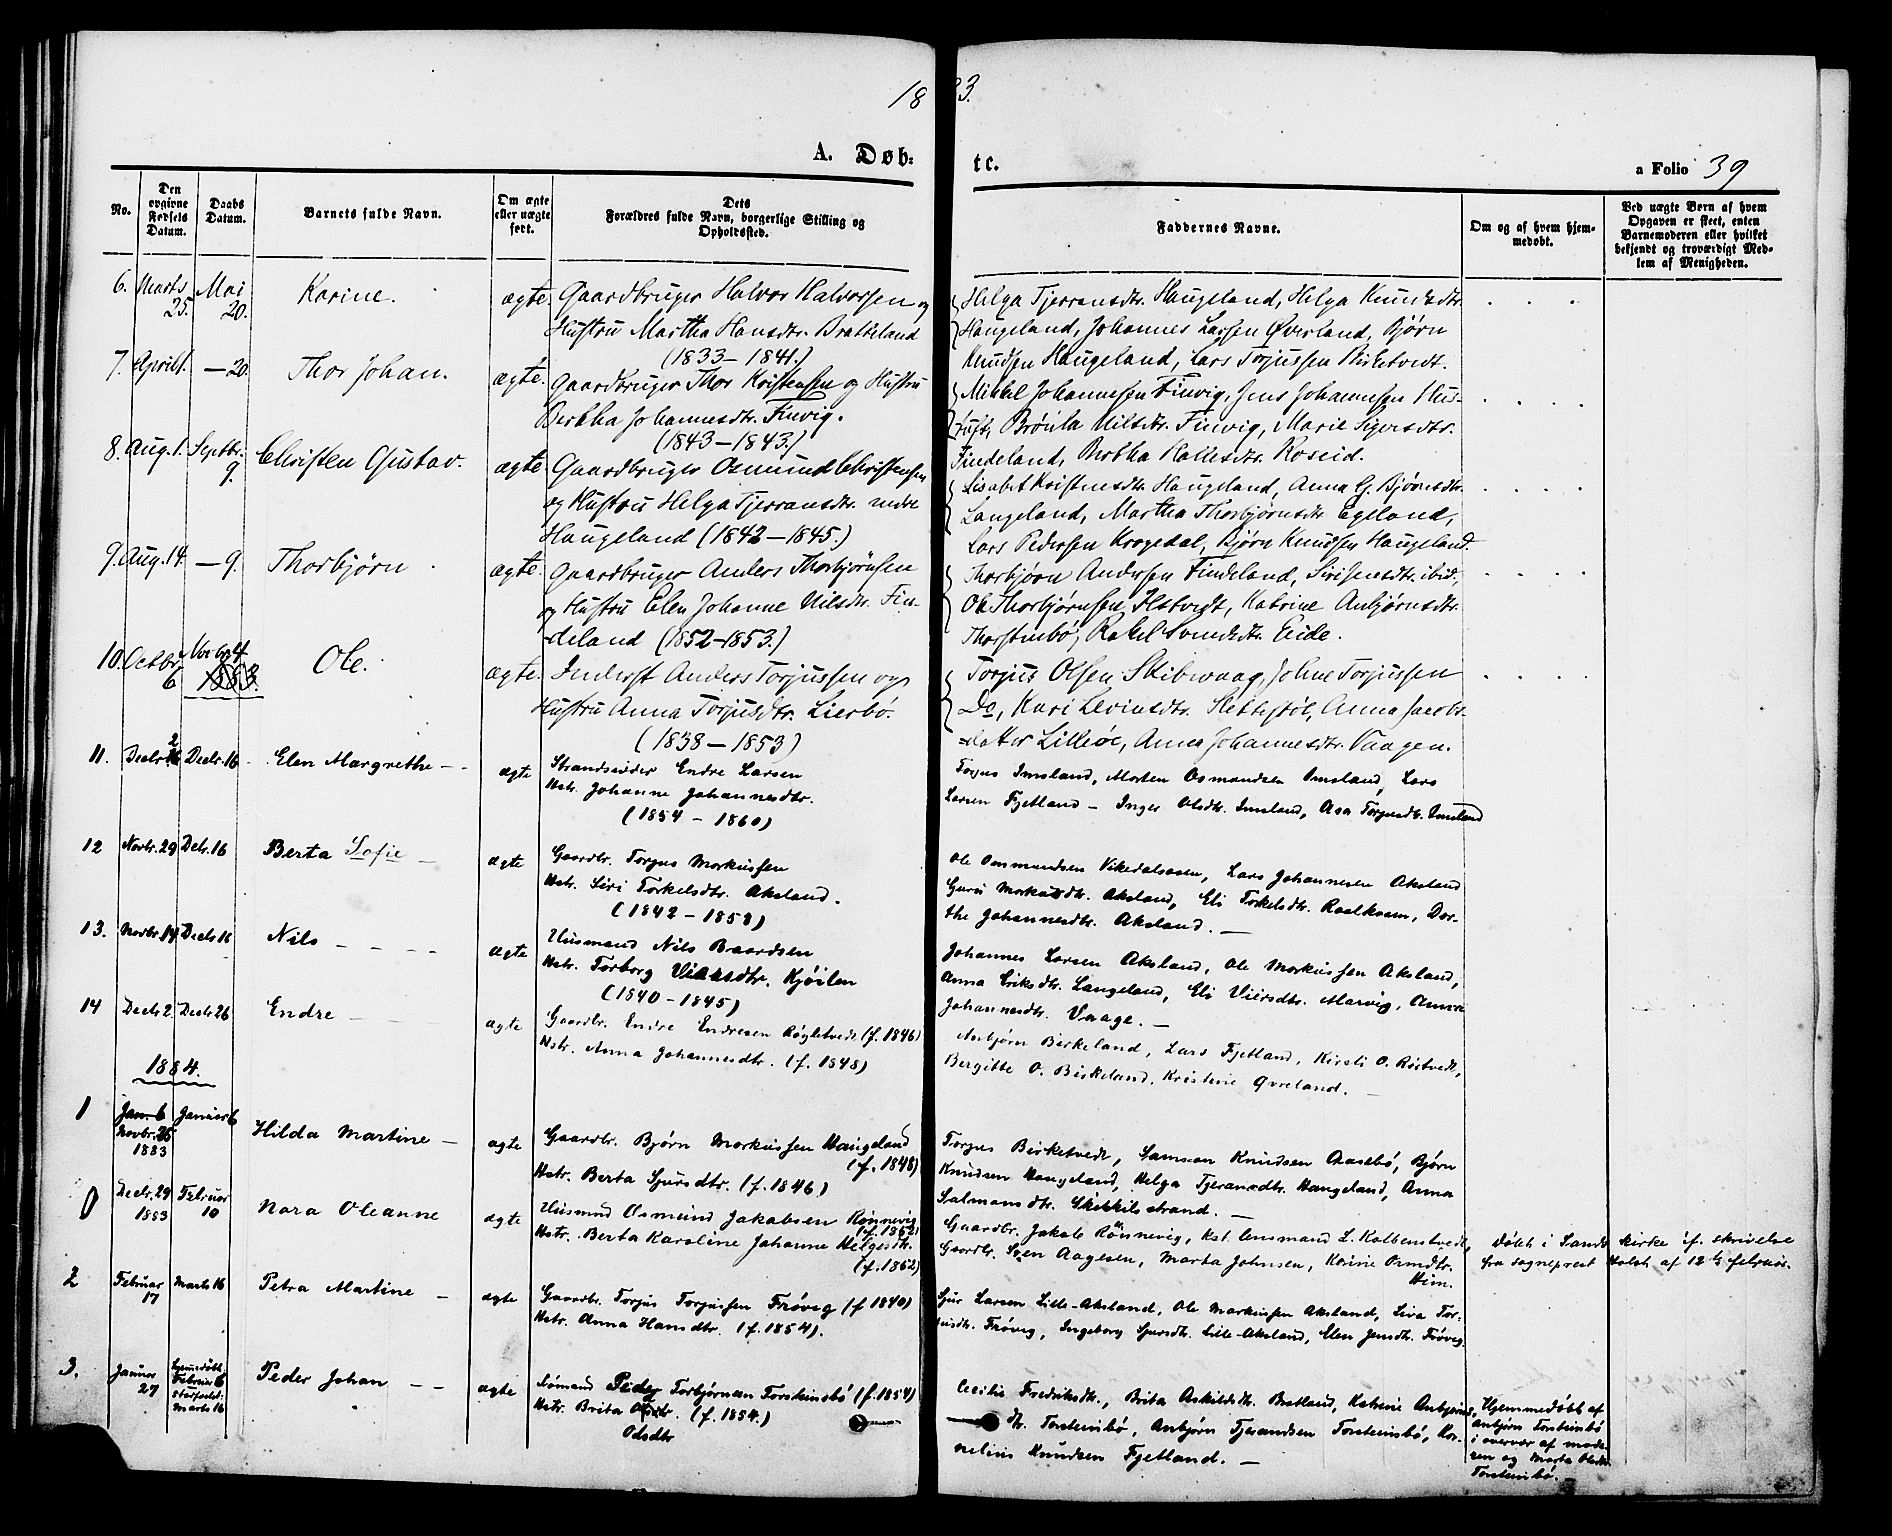 1883.
A. Døb:
tc.
a Folio 39
No.
Den opgivne Fødsels Datum.
Daabs Datum.
Barnets fulde Navn.
Om ægte eller uægte født.
Dets Forældres fulde Navn, borgerlige Stilling og Opholdssted.
Faddernes Navne.
Om og af hvem hjemmedøbt.
Ved uægte Børn af hvem Opgaven er skeet, enten Barnemoderen eller hvilket bekjendt og troværdigt Medlem af Menigheden.
6. Marts 25. Mai 20. Karine. ægte. Gaardbruger Halvor Halvorsen og
Hustru Martha Hansdtr. Bratteland
(1833-1841.)
Helga Tjerransdtr. Haugeland, Helga Knudsdtr.
Haugeland, Johannes Larsen Øverland, Bjørn
Knudsen Haugeland, Lars Torjussen Birketvedt.
7. April 1. — 20. Thor Johan. ægte. Gaardbruger Thor Kristensen og Hustru
Bertha Johannesdtr. Finvig.
(1843-1843.)
Mikkel Johannesen Finvig, Jens Johannesen Hus-
tuft, Nilsdtr. Finvig, Marie Sigvesdtr.
Findeland, Bertha Kallesdtr. Koseid.
8. Aug. 1. Septbr. 9. Christen Gustav. ægte. Gaardbruger Osmund Christensen
og Hustru Helga Tjerransdtr. nedre
Haugeland (1842-1845.)
Lisabet Kristensdtr. Haugeland, Anna G. Bjørnsdtr.
Langeland, Martha Thorbjørnsdtr. Egeland,
Lars Pedersen Krogedal, Bjørn Knudsen Haugeland.
9. Aug. 14. — 9. Thorbjørn ægte. Gaardbruger Anders Thorbjörnsen
og Hustru Elen Johanne Nilsdtr. Fin-
deland (1852-1853.)
Thorbjørn Andersen Findeland, ibid,
Ole Thorbjørnsen Ilstvedt, Katrine Anbjørnsdtr.
Thorsteinbø, Rakel Svendsdtr. Eide.
10. Octbr. 6 Novbr. 4 1883. Ole. ægte. Inderst Anders Torjussen og
Hustru Anna Torjusdtr. Lierbö.
(1838-1853)
Torjus Olsen Skibevaag, Johne Torjussen
Do, Kari Levinsdtr. Slettestøl, Anna Jacobs-
datter Lilleøe, Anna Johannesdtr. Vaagen.
11. Decbr. 2 Decbr. 16 Elen Margrethe -- ægte Strandsidder Endre Larsen
Hstr. Johanne Johannesdtr.
(1854 - 1860)
Torjus Imsland, Morten Osmundsen Imsland, Lars
Larsen Fjetland - Inger Olsdtr. Imsland, Asa Torjusdtr. Imsland
12 Novbr. 29 Decbr. 16 Berta Sofie - ægte Gaardbr. Torjus Markussen
Hstr. Siri Torkelsdtr. Aksland.
(1842 - 1852)
Ole Osmundsen Vikedalsosen, Lars Johannesen Aksland
Guri Markusdtr. Aksland, Eli Torkelsdtr. Raalkvam, Dor-
the Johannesdtr. Aksland. —
13. Novbr. 14 Decbr. 16 Nils - - - - ægte Husmand Nils Baardsen
Hstr. Torborg Viersdtr. Kjöilen
(1840 - 1845)
Johannes Larsen Aksland, Ole Markussen Aksland,
Anna Eriksdtr. Langeland, Eli Viersdtr. Marvig, Anna
Johannesdtr. Vaage. —
14 Decbr. 2. Decbr. 26 Endre - - ægte Gaardbr. Endre Endresen Røgletvedt (f. 1846)
Hstr. Anna Johannesdtr. (f. 1848)
Anbjørn Birkeland, Lars Fjetland, Kirsti O. Röstvedt,
Bergitte O. Birkeland, Kristine Qvreland. —
1884.
1 Jan. 6 Novbr. 25 1883 Januar 6 Hilda Martine - ægte Gaardbr. Bjørn Markussen Haugeland
(f. 1848)
Hstr. Berta Sjursdtr. (f. 1846)
Torjus Birketvedt, Samson Knudsen Aasebö, Bjørn
Knudsen Haugeland, Helga Tjeransdtr. Haugeland, Anna
Salmonsdtr. Skikkilstrand. —
0 Decbr. 29 1883 Februar 10 Nora Oleanne ægte Husmand Osmund Jakobsen Rönnevig
(f. 1862)
Hstr. Berta Karoline Johanne Helgesdtr.
(f. 1862)
Gaardbr. Jakob Rönnevig, kst. lensmand L. Kolbenstvedt,
Gaardbr. Sven Aagesen, Marta Johnsen, Karine Ormdtr.
Heim.
Døbt i Sands kirke if. skrivelse
fra sogneprest Holst af 12/2 februar.
2 Februar 17 Marts 16 Petra Martine - ægte Gaardbr. Torjus Torjussen Frövig (f 1840)
Hstr. Anna Hansdtr. (f. 1854).
Sjur Larsen Lille-Aksland, Ole Markussen Aksland, Liva Tor-
jusdtr. Frövig, Ingeborg Sjursdtr. Lille-Aksland, Elen Jensdtr. Frövig.
3. Januar 27 Hjemmedøbt Februar 6 stadfæstet Marts 16 Peder Johan - - ægte Sömand Peder Torbjørnsen Torsteinsbö (f. 1854)
Hstr. Brita (f. 1854.)
Odsdtr
Cecilie Fredriksdtr., Brita Askildsdtr. Bratland, Katrine Anbjørns-
dtr. Torsteinsbö, Anbjørn Tjerandsen Torsteinsbö, Kor-
nelius Knudsen Fjetland. —
Hjemmedöbt af
Anbjørn Torsteinsbö
i overvær af mode-
ren og Marta Olsdtr.
Torsteinsbö.